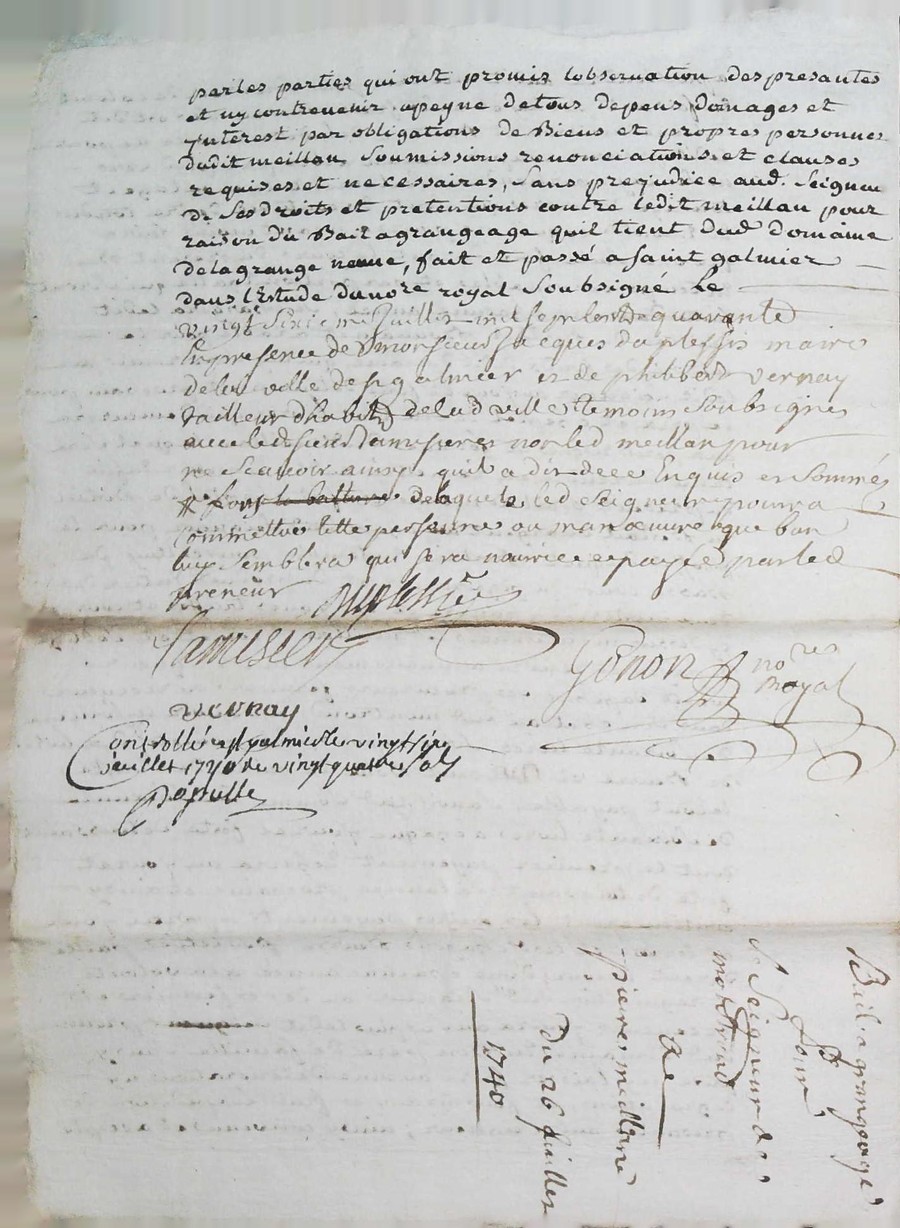 par les parties qui ont promis lobservation des presantes
et ny contrevenir apeyne detous depens domages et
ynterest par obligations de Biens et propres personnes
dudit meillan soumissions renonciations et clauses
requises et necessaires, sans prejudice aud. Seigneur
de ses droits et pretentions contre ledit meillan pour
raison du Bail agrangeage quil tient dud domaine
delagrange neuve, fait et passé a saint galmier
dans lEstude dunore royal soubsigné le
vingt sixieme Juillet mil sept cent quarante
En presence de monsieur Jacques duplessis maire
de la ville de st galmier et de philibert vernay
tailleur dhabits delad ville temoins soubsignés
avec led sieur Damisieres non led meillan pour
ne scavoir ainsy quil a dit de ce Enquis et sommé
# led seigneur pourra
commettre telle personne ou manoeuvre que bon
luy semblera qui sera nourrie e payée par led
preneur
Duplessis
Vernay
Gonon nore
royal
Controllé a st galmier le vingt six
juillet 1740 re vingt quatre sols
Bail a grangeage
Pour
le Seigneur de
a
pierre meillan
Du 26 Juillet
1740